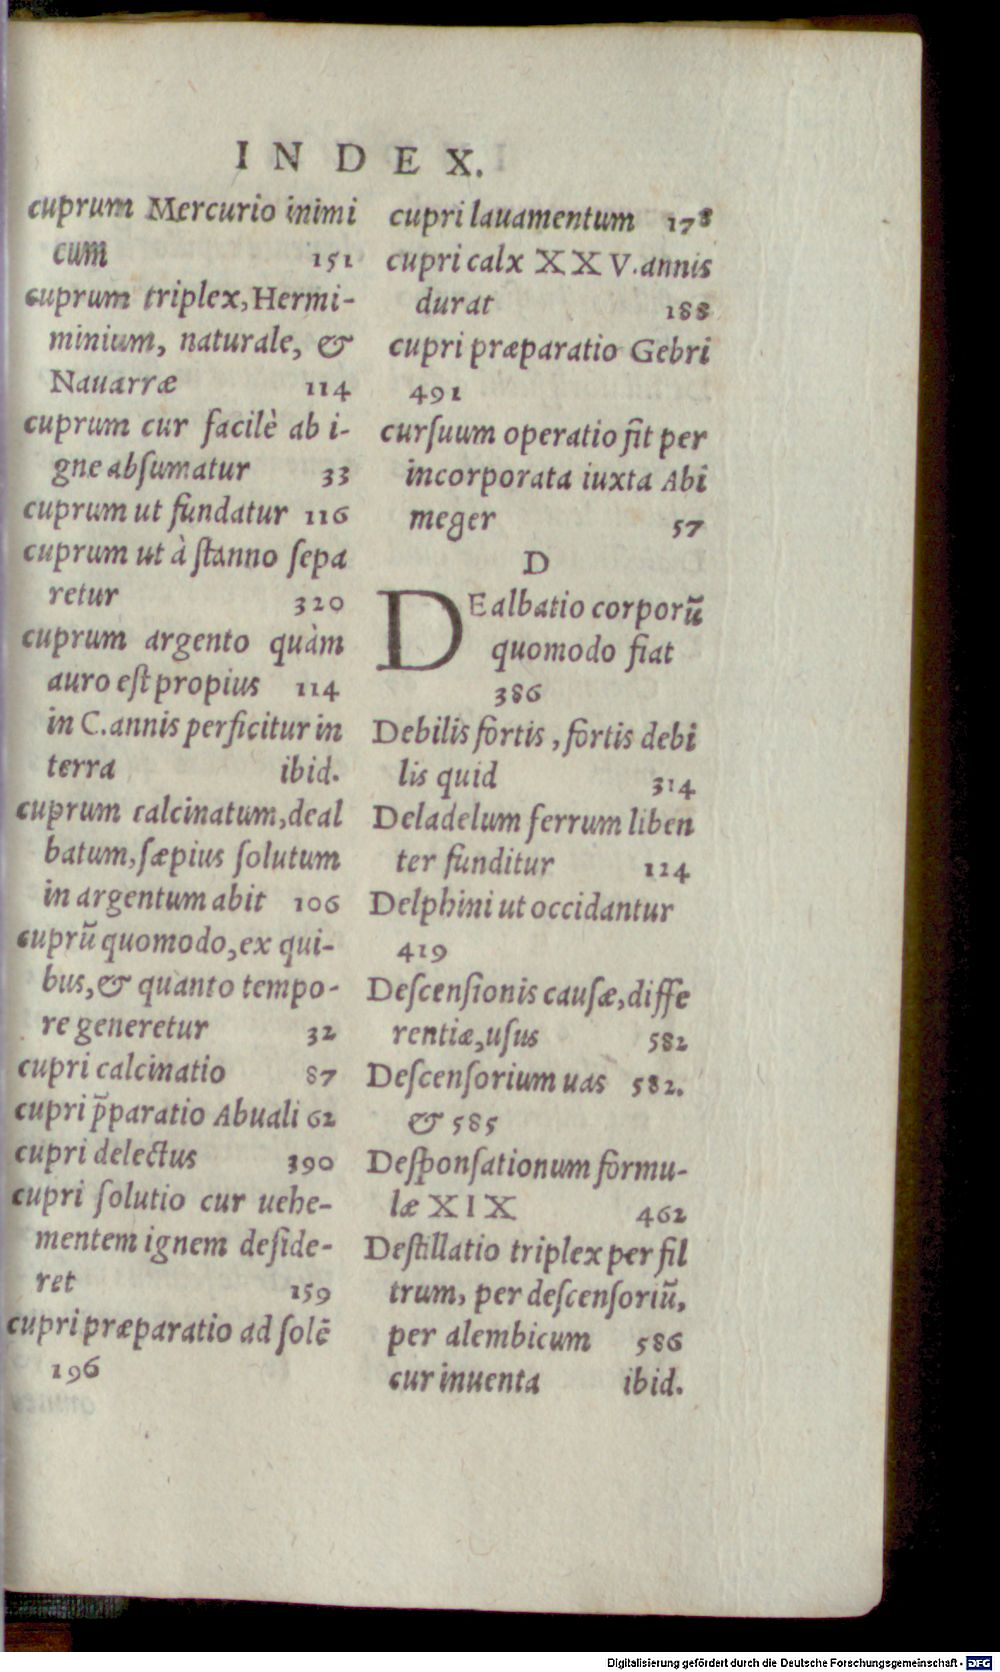 INDEX.
cuprum Mercurio inimi
cum 151
cuprum triplex, Hermi-
minium, naturale, &
Nauarræ 114
cuprum cur facilè ab i-
gne absumatur 33
cuprum ut fundatur 116
cuprum ut à stanno sepa
retur 320
cuprum argento quàm
auro est propius 114
in C. annis perficitur in
terra ibid.
cuprum calcinatum, deal
batum, sæpius solutum
in argentum abit 106
cuprũ quomodo, ex qui-
bus, & quanto tempo-
re generetur 32
cupri calcinatio 87
cupri p̃paratio Abuali 62
cupri delectus 390
cupri solutio cur uehe-
mentem ignem deside-
ret 159
cupri præparatio ad solẽ
196
cupri lauamentum 178
cupri calx XXV. annis
durat 188
cupri præparatio Gebri
491
cursuum operatio fit per
incorporata iuxta Abi
meger 57
D
DEalbatio corporũ
quomodo fiat
386
Debilis fortis, fortis debi
lis quid 314
Deladelum ferrum liben
ter funditur 124
Delphini ut occidantur
419
Descensionis causæ, diffe
rentiæ, usus 582
Descensorium uas 582.
& 585
Desponsationum formu-
læ XIX 462
Destillatio triplex per fil
trum, per descensoriũ,
per alembicum 586
cur inuenta ibid.
Digitalisierung gefördert durch die Deutsche Forschungsgemeinschaft - DFG